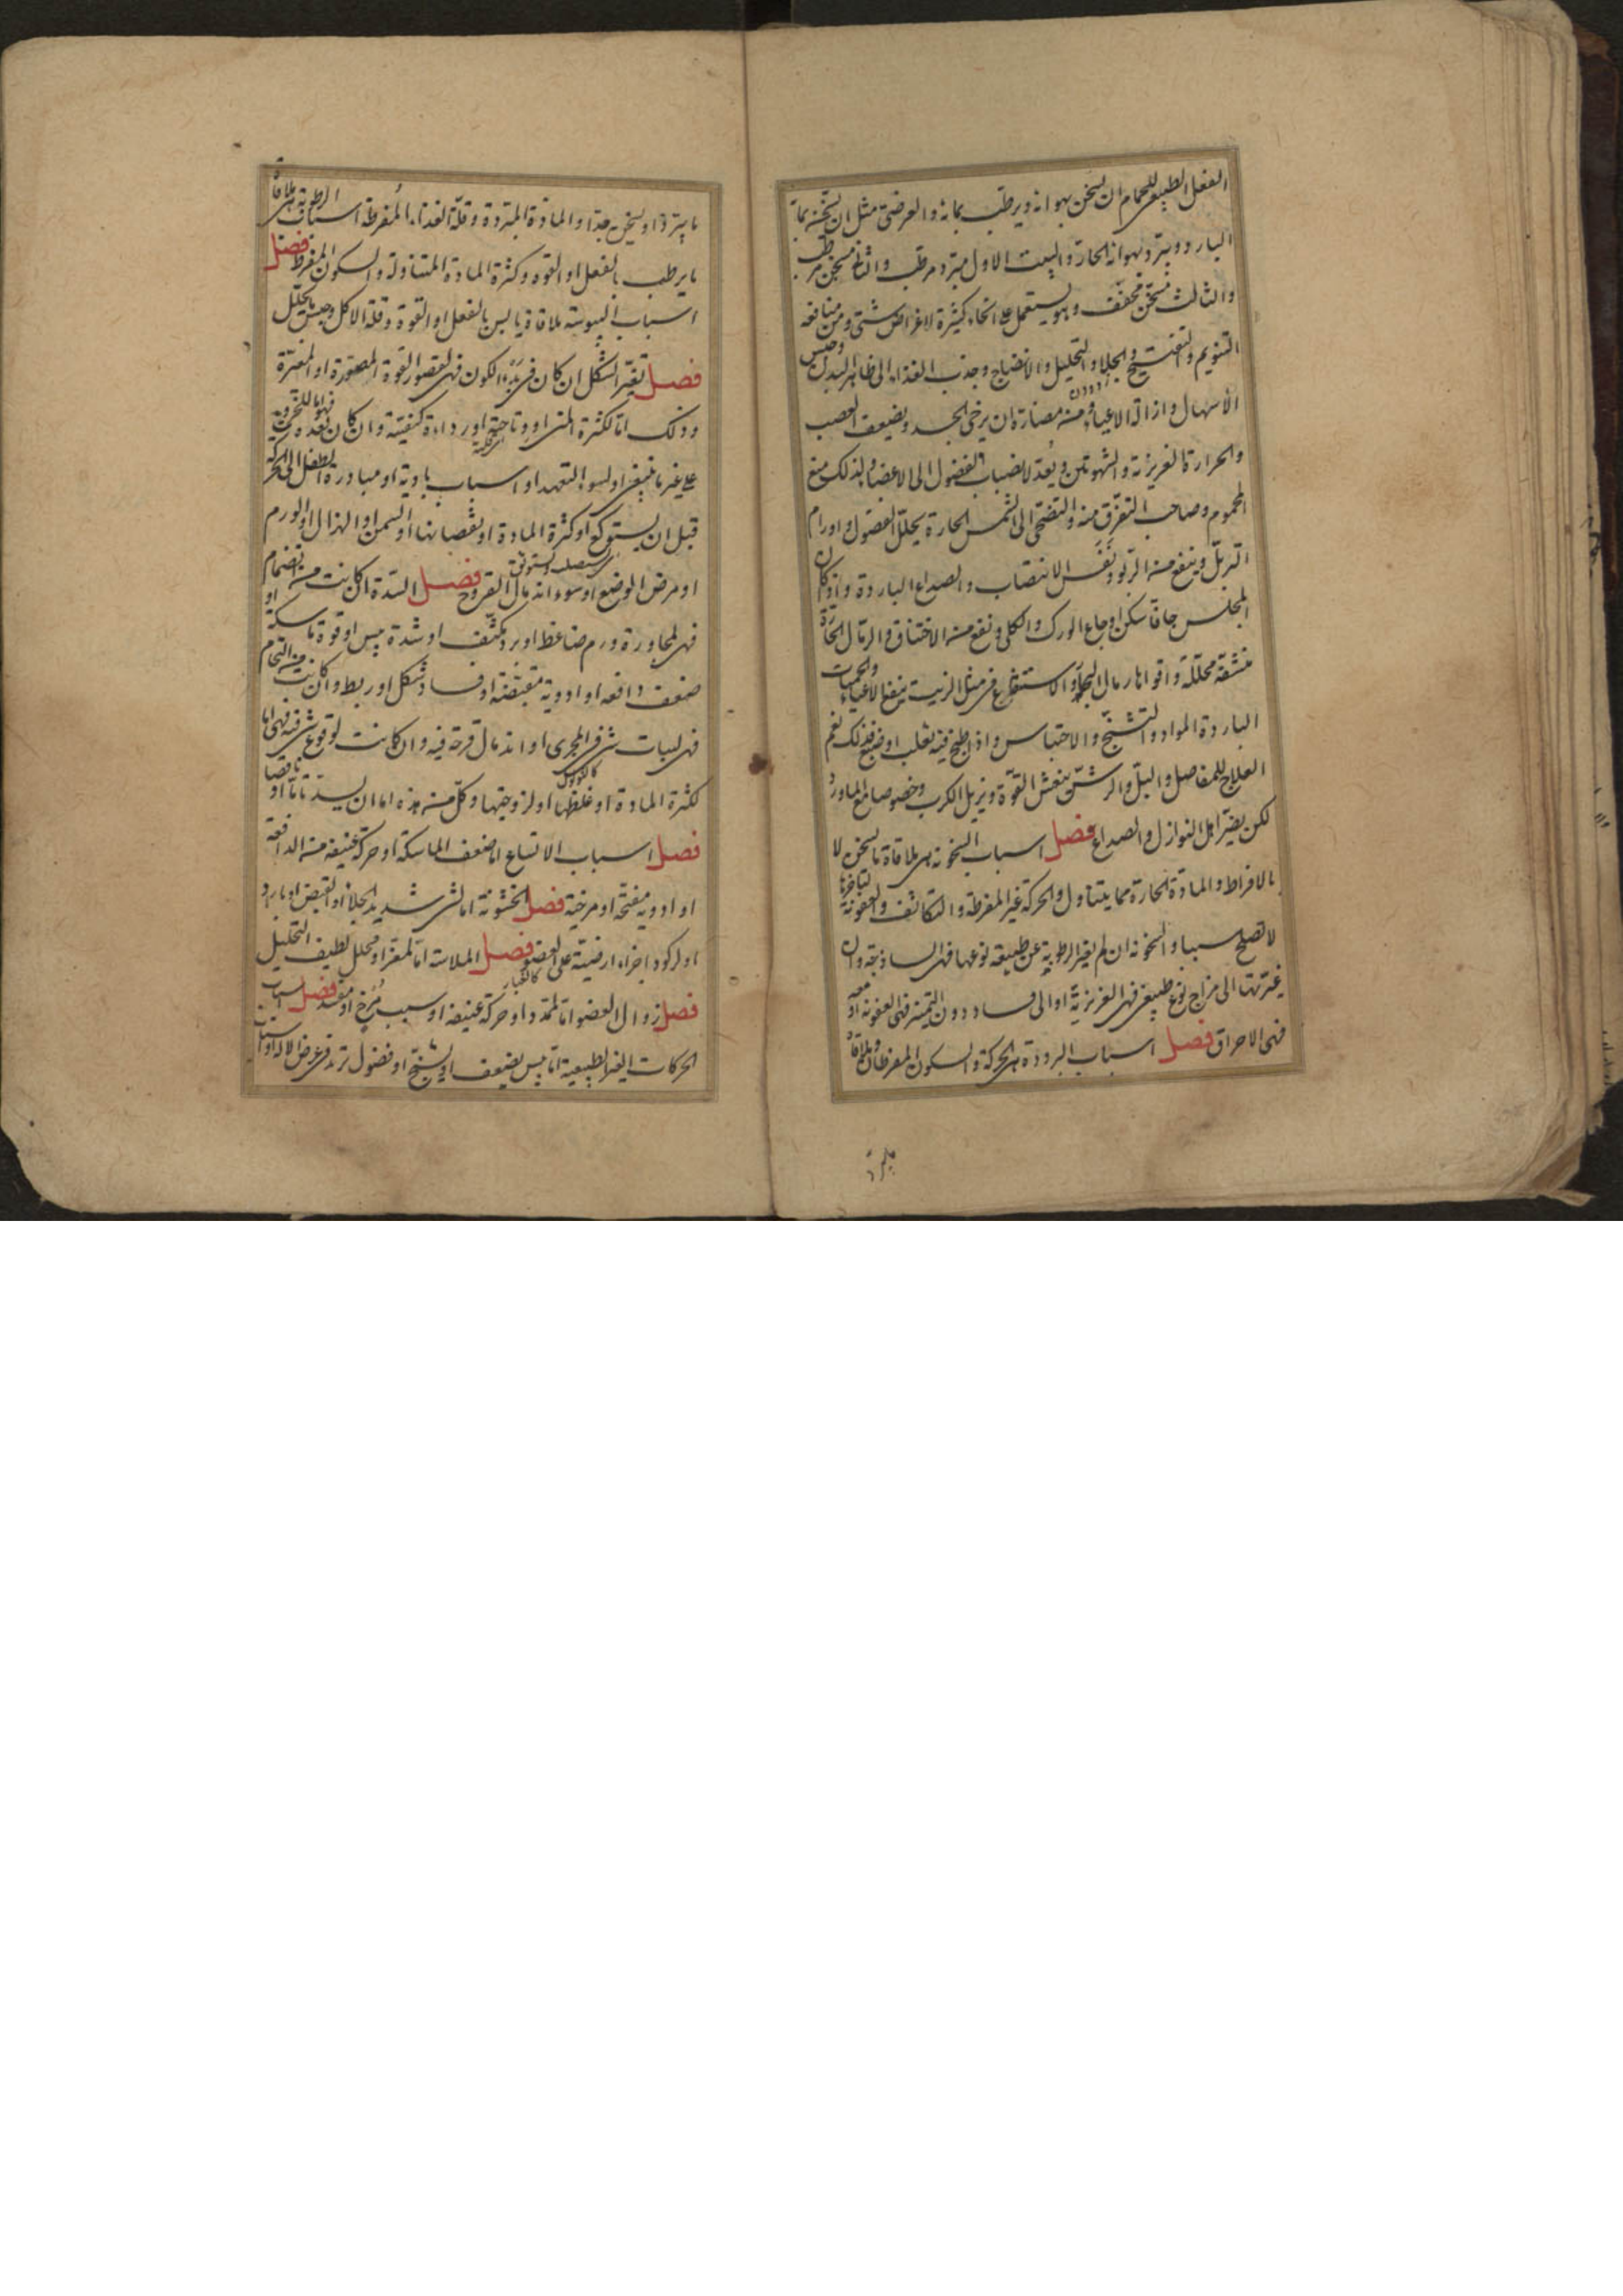 الفعل الطبيعى للحمام ان يسخن بهوائه ويرطب بمائه والعرضى مثل ان يسخنه بما
البارد ويبرد بهوائه الحار والبيت الاول مبرد مرطب والثانى مسخن مرطب
والثالث مسخن مجفف وهو يستعمل على انحاء كثيرة لاغراض شتى ومن منافعه
التنويم والتفتيح والجلاء والتحليل والانضاج وجذب الغذاء الى ظاهر البدن وحبس
الاسهال وازالة الاعياء ومن مضاره ان يرخى الجسد ويضعف العصب
والحرارة الغريزية والشهوتين ويعد لانصباب الفضول الى الاعضاء ولذلك منع
المحموم وصاحب التفرق منه والتضحى الى الشمس الحارة يحلل الفضول واورام
التربل وينفع من الربو ونفس الانتصاب والصداع الباردة واذا كان
المجلس جافا سكن اوجاع الورك والكلى ونفع من الاختناق والرمال الحارة
منشفة محللة واقواها رمال البحار والاستنقاع فى مثل الزيت ينفع الاعياء والحميات
الباردة المواد والتشنج والاحتباس واذا طبخ فيه ثعلب او ضبع فذلك نعم
العلاج للمفاصل والبل والرش ينعش القوة ويزيل الكرب وخصوصا مع الماورد
لكن يضر اهل النوازل والصداع فصل اسباب السخونة هى ملاقاة ما يسخن لا
بالافراط والمادة الحارة مما يتناول والحركة غير المفرطة والتكاثف والعفونة
لا تصلح سببا والسخونة ان لم يغير الرطوبة عن طبيعة نوعها فهى الساذجة وان
غيرتها الى مزاج نوع طبيعى فهى الغريزية او الى فساد دون التميز فهى العفونة او معه
فهى الاحراق فصل اسباب البرودة هى الحركة والسكون المفرطان وملاقاة
ما يبرد
ما يبرد او يسخن جدا والمادة المبردة وقلة الغذاء المفرطة اسباب الرطوبة هى ملاقاة
ما يرطب بالفعل او القوه وكثرة المادة المتناولة والسكون المفرط فصل
اسباب اليبوسة ملاقاة يابس بالفعل او القوة وقلة الاكل وحبس ما يحلل
فصل تغير الشكل ان كان فى بدء الكون فهى لقصور القوة المصورة او المغيرة
وذلك اما لكثرة المنى او وتاحته او رداءة كيفيته وان كان بعده فهو اما للخروج
على غير ما ينبغى او لسوء التعهد او اسباب بادية او مبادرة الطفل الى الحركة
قبل ان يستوكع او كثرة المادة او نقصانها او السمن او الهزال او الورم
او مرض الوضع او سوء اندمال القروح فصل السدة ان كانت من انضمام
فهى لمجاورة ورم ضاغط او برد مكثف او شدة يبس او قوة ماسكة او
ضعف دافعه او ادوية مقبضة او فساد شكل او ربط وان كانت من التحام
فهى لنبات شئ فى المجرى او اندمال قرحة فيه وان كانت لوقوع شئ فيه فهى اما
لكثرة المادة او غلظها او لزوجتها وكل من هذه اما ان يسد تاما او ناقصا
فصل اسباب الاتساع اما ضعف الماسكة او حركة عنيفة من الدافعة
او ادوية مفتحة او مرخية فصل الخشونة اما لشئ شديد الجلاء او القبض او بارد
او لركود اجزاء ارضية على العضو كالغبار فصل الملاسة اما لمغر او محلل لطيف التحليل
فصل زوال العضو اما لتمدد او حركة عنيفة او سبب مرخ او مفسد فصل اسباب
الحركات الغير الطبيعية اما يبس يضعف او يشنج او فضول تردد فى عرض الآلة